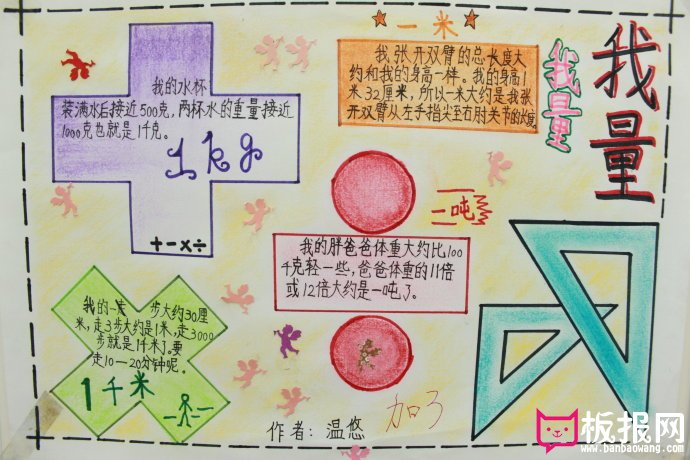 一米
我张开双臂的总长度大
约和我的身高一样。我的身高1
米32厘米,所以一米大约是我张
开双臂从左手指尖至右肘关节的长度。
我量
我量
我的水杯
装满水后接近500克,两杯水的重量接近
1000克也就是1千克。
1kg
+-×÷
一吨
我的胖爸爸体重大约比100
千克轻一些,爸爸体重的11倍
或12倍大约是一吨了。
我的一大步大约30厘
米,走3步大约是1米,走3000
步就是1千米了,要
走10—20分钟呢。
1千米
作者:温悠
板报网
www.banbaowang.com